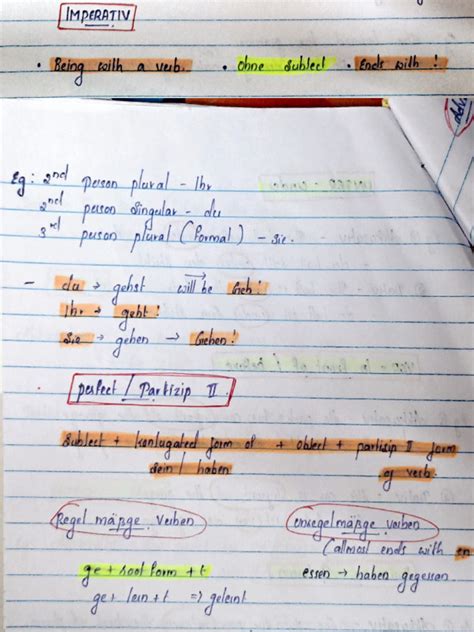 IMPERATIV
• Being with a verb. • ohne Subject • Ends with !
Eg: 2nd person plural - Ihr
2nd person Singular - du
3rd person plural (formal) - sie.
- du → gehst will be Geh!
Ihr → geht!
Sie → gehen → Gehen!
perfect / Partizip II
Subject + konjugated form of + object + partizip II form
sein / haben of verb.
Regel mäßge verben unregelmäßge verben
(allmost ends with en
ge + root form + t essen → haben gegessen.
ge + lern + t ⇒ gelernt